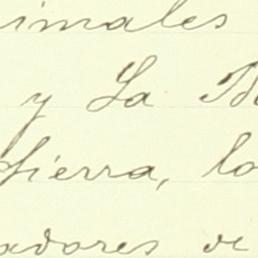 imales
y La
Sierra, lo
adores de